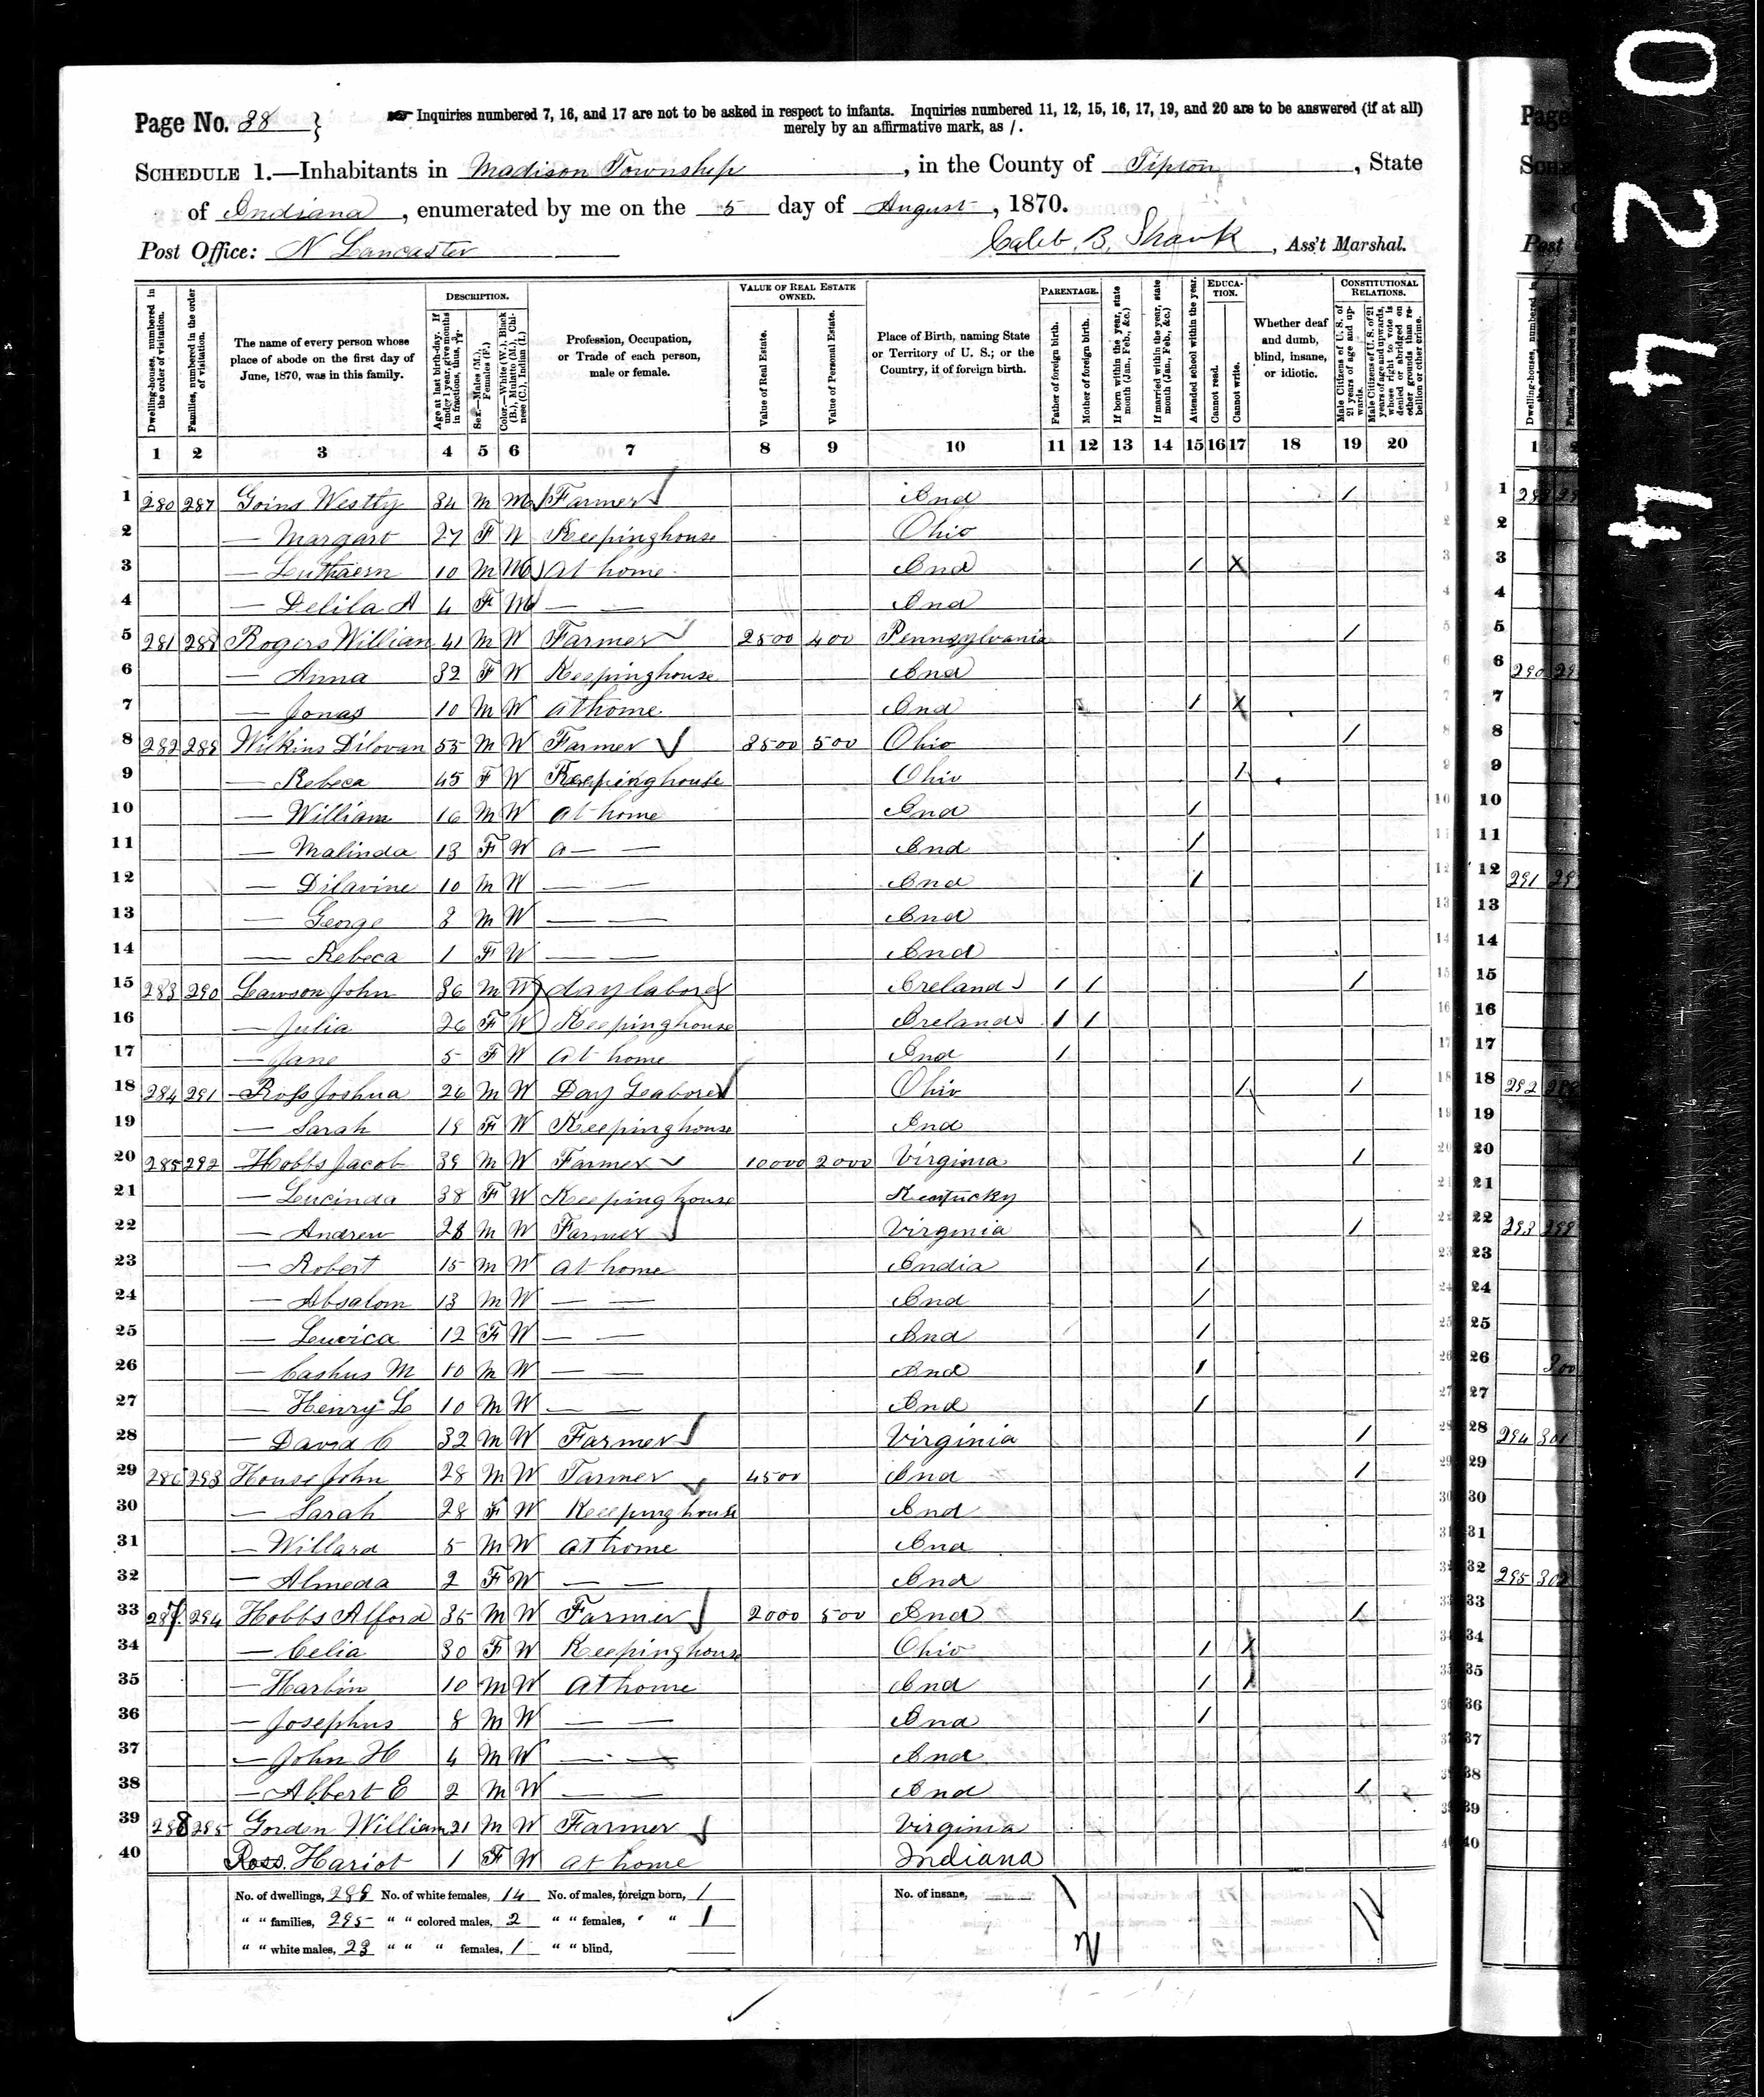 Page No. 38 } Inquiries numbered 7, 16, and 17 are not to be asked in respect to infants. Inquiries numbered 11, 12, 15, 16, 17, 19, and 20 are to be answered (if at all)
merely by an affirmative mark, as /.
SCHEDULE 1.—Inhabitants in Madison Township, in the County of Tipton, State
of Indiana, enumerated by me on the 5 day of August, 1870.
Post Office: N Lancaster Caleb B. Shank, Ass't Marshal.
Dwelling-houses, numbered in the order of visitation.
Families, numbered in the order of visitation.
The name of every person whose place of abode on the first day of June, 1870, was in this family.
DESCRIPTION.
Age at last birth-day. If under 1 year, give months in fractions, thus, 3/12.
Sex.—Males (M.), Females (F.)
Color.—White (W.), Black (B.), Mulatto (M.), Chinese (C.), Indian (I.)
Profession, Occupation, or Trade of each person, male or female.
VALUE OF REAL ESTATE OWNED.
Value of Real Estate.
Value of Personal Estate.
Place of Birth, naming State or Territory of U. S.; or the Country, if of foreign birth.
PARENTAGE.
Father of foreign birth.
Mother of foreign birth.
If born within the year, state month (Jan., Feb., &c.)
If married within the year, state month (Jan., Feb., &c.)
Attended school within the year.
EDUCATION.
Cannot read.
Cannot write.
Whether deaf and dumb, blind, insane, or idiotic.
CONSTITUTIONAL RELATIONS.
Male Citizens of U. S. of 21 years of age and upwards.
Male Citizens of U. S. of 21 years of age and upwards, whose right to vote is denied or abridged on other grounds than rebellion or other crime.
1 2 3 4 5 6 7 8 9 10 11 12 13 14 15 16 17 18 19 20
1 280 287 Goins Westly 34 M M Farmer Ind /
2 — Margart 27 F W Keepinghouse Ohio
3 — 10 M M at home Ind / X
4 — Delila A 4 F M — — Ind
5 281 288 Rogers William 41 M W Farmer 2500 400 Pennsylvania /
6 — Anna 32 F W Keepinghouse Ind
7 — Jonas 10 M W at home Ind / X
8 282 289 Wilkins Dilovan 55 M W Farmer 3500 500 Ohio /
9 — Rebeca 45 F W Keepinghouse Ohio /
10 — William 16 M W at home Ind /
11 — Malinda 13 F W a — — Ind /
12 — Dilavine 10 M W — — Ind /
13 — George 8 M W — — Ind
14 — Rebeca 1 F W — — Ind
15 283 290 Lawson John 36 M W day laborer Ireland / / /
16 — Julia 26 F W Keepinghouse Ireland / /
17 — Jane 5 F W At home Ind /
18 284 291 Ross Joshua 26 M W Day Leaborer Ohio / /
19 — Sarah 18 F W Keepinghouse Ind
20 285 292 Hobbs Jacob 39 M W Farmer 10000 2000 Virginia /
21 — Lucinda 38 F W Keepinghouse Kentucky
22 — Andrew 28 M W Farmer Virginia /
23 — Robert 15 M W at home India /
24 — Absalom 13 M W — — Ind /
25 — Luvica 12 F W — — Ind /
26 — Cashus M 10 M W — — Ind /
27 — Henry L 10 M W — — Ind /
28 — David C 32 M W Farmer Virginia /
29 286 293 House John 28 M W Farmer 4500 Ind /
30 — Sarah 28 F W Keepinghouse Ind
31 — Willard 5 M W at home Ind
32 — Almeda 2 F W — — Ind
33 287 294 Hobbs Alford 35 M W Farmer 2000 500 Ind /
34 — Celia 30 F W Keepinghouse Ohio / /
35 — Harbin 10 M W at home Ind / /
36 — Josephus 8 M W — — Ind /
37 — John H 4 M W — — Ind
38 — Albert E 2 M W — — Ind /
39 288 295 Gorden William 21 M W Farmer Virginia
40 Ross Hariot 1 F W at home Indiana
No. of dwellings, 288 No. of white females, 14 No. of males, foreign born, 1 No. of insane,
" " families, 295 " " colored males, 2 " " females, " " 1
" " white males, 23 " " " females, 1 " " blind,
0244